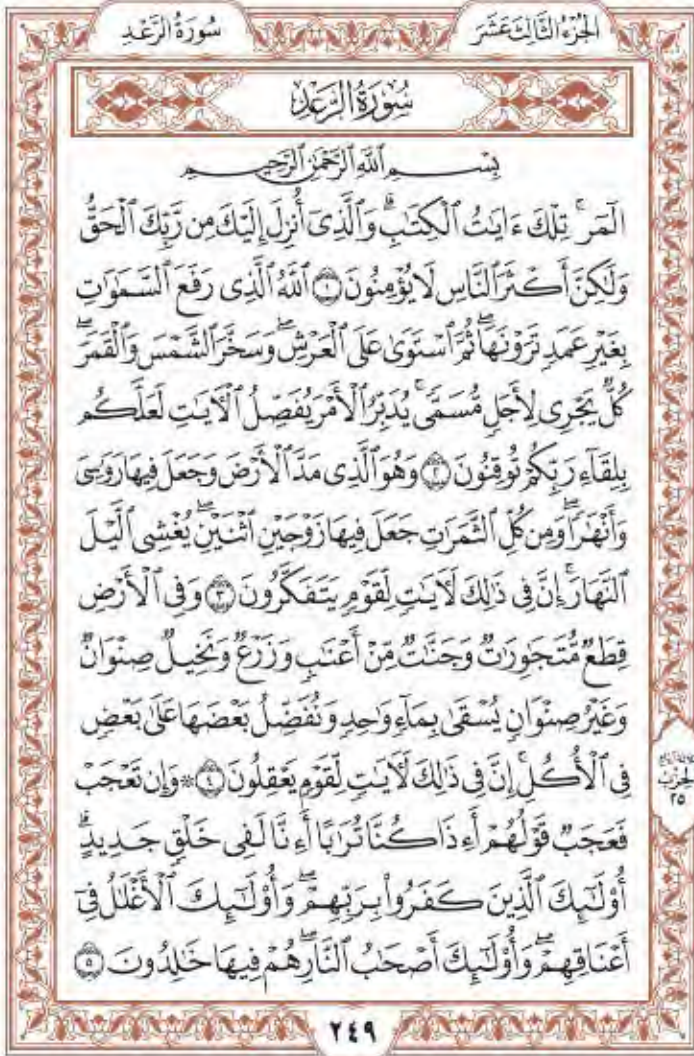 الجُزْءُ الثَّالِثَ عَشَرَ
سُورَةُ الرَّعْدِ
سُورَةُ الرَّعْدِ
بِسْمِ ٱللَّهِ ٱلرَّحْمَٰنِ ٱلرَّحِيمِ
الٓمٓرۚ تِلْكَ ءَايَٰتُ ٱلْكِتَٰبِۗ وَٱلَّذِىٓ أُنزِلَ إِلَيْكَ مِن رَّبِّكَ ٱلْحَقُّ
وَلَٰكِنَّ أَكْثَرَ ٱلنَّاسِ لَا يُؤْمِنُونَ ١ ٱللَّهُ ٱلَّذِى رَفَعَ ٱلسَّمَٰوَٰتِ
بِغَيْرِ عَمَدٍ تَرَوْنَهَاۖ ثُمَّ ٱسْتَوَىٰ عَلَى ٱلْعَرْشِۖ وَسَخَّرَ ٱلشَّمْسَ وَٱلْقَمَرَۖ
كُلٌّ يَجْرِى لِأَجَلٍ مُّسَمًّىۚ يُدَبِّرُ ٱلْأَمْرَ يُفَصِّلُ ٱلْءَايَٰتِ لَعَلَّكُم
بِلِقَآءِ رَبِّكُمْ تُوقِنُونَ ٢ وَهُوَ ٱلَّذِى مَدَّ ٱلْأَرْضَ وَجَعَلَ فِيهَا رَوَٰسِىَ
وَأَنْهَٰرًاۖ وَمِن كُلِّ ٱلثَّمَرَٰتِ جَعَلَ فِيهَا زَوْجَيْنِ ٱثْنَيْنِۖ يُغْشِى ٱلَّيْلَ
ٱلنَّهَارَۚ إِنَّ فِى ذَٰلِكَ لَءَايَٰتٍ لِّقَوْمٍ يَتَفَكَّرُونَ ٣ وَفِى ٱلْأَرْضِ
قِطَعٌ مُّتَجَٰوِرَٰتٌ وَجَنَّٰتٌ مِّنْ أَعْنَٰبٍ وَزَرْعٌ وَنَخِيلٌ صِنْوَانٌ
وَغَيْرُ صِنْوَانٍ يُسْقَىٰ بِمَآءٍ وَٰحِدٍ وَنُفَضِّلُ بَعْضَهَا عَلَىٰ بَعْضٍ
فِى ٱلْأُكُلِۚ إِنَّ فِى ذَٰلِكَ لَءَايَٰتٍ لِّقَوْمٍ يَعْقِلُونَ ٤ ۞ وَإِن تَعْجَبْ
فَعَجَبٌ قَوْلُهُمْ أَءِذَا كُنَّا تُرَٰبًا أَءِنَّا لَفِى خَلْقٍ جَدِيدٍۗ
أُو۟لَٰٓئِكَ ٱلَّذِينَ كَفَرُوا۟ بِرَبِّهِمْۖ وَأُو۟لَٰٓئِكَ ٱلْأَغْلَٰلُ فِىٓ
أَعْنَاقِهِمْۖ وَأُو۟لَٰٓئِكَ أَصْحَٰبُ ٱلنَّارِۖ هُمْ فِيهَا خَٰلِدُونَ ٥
الحِزْبِ
٢٥
٢٤٩